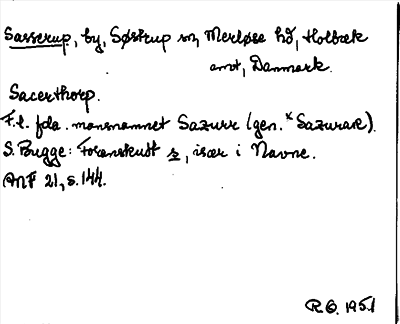 Sasserup, by, Søstrup sn, Merløse hd, Holbæk
amt, Danmark.
Sacerthorp.
F.l. fda. mansnamnet Sazurr (gen. *Sazurar).
S. Bugge: Forenskudt z, især i Navne.
ANF 21, s. 144.
R.O. 1951